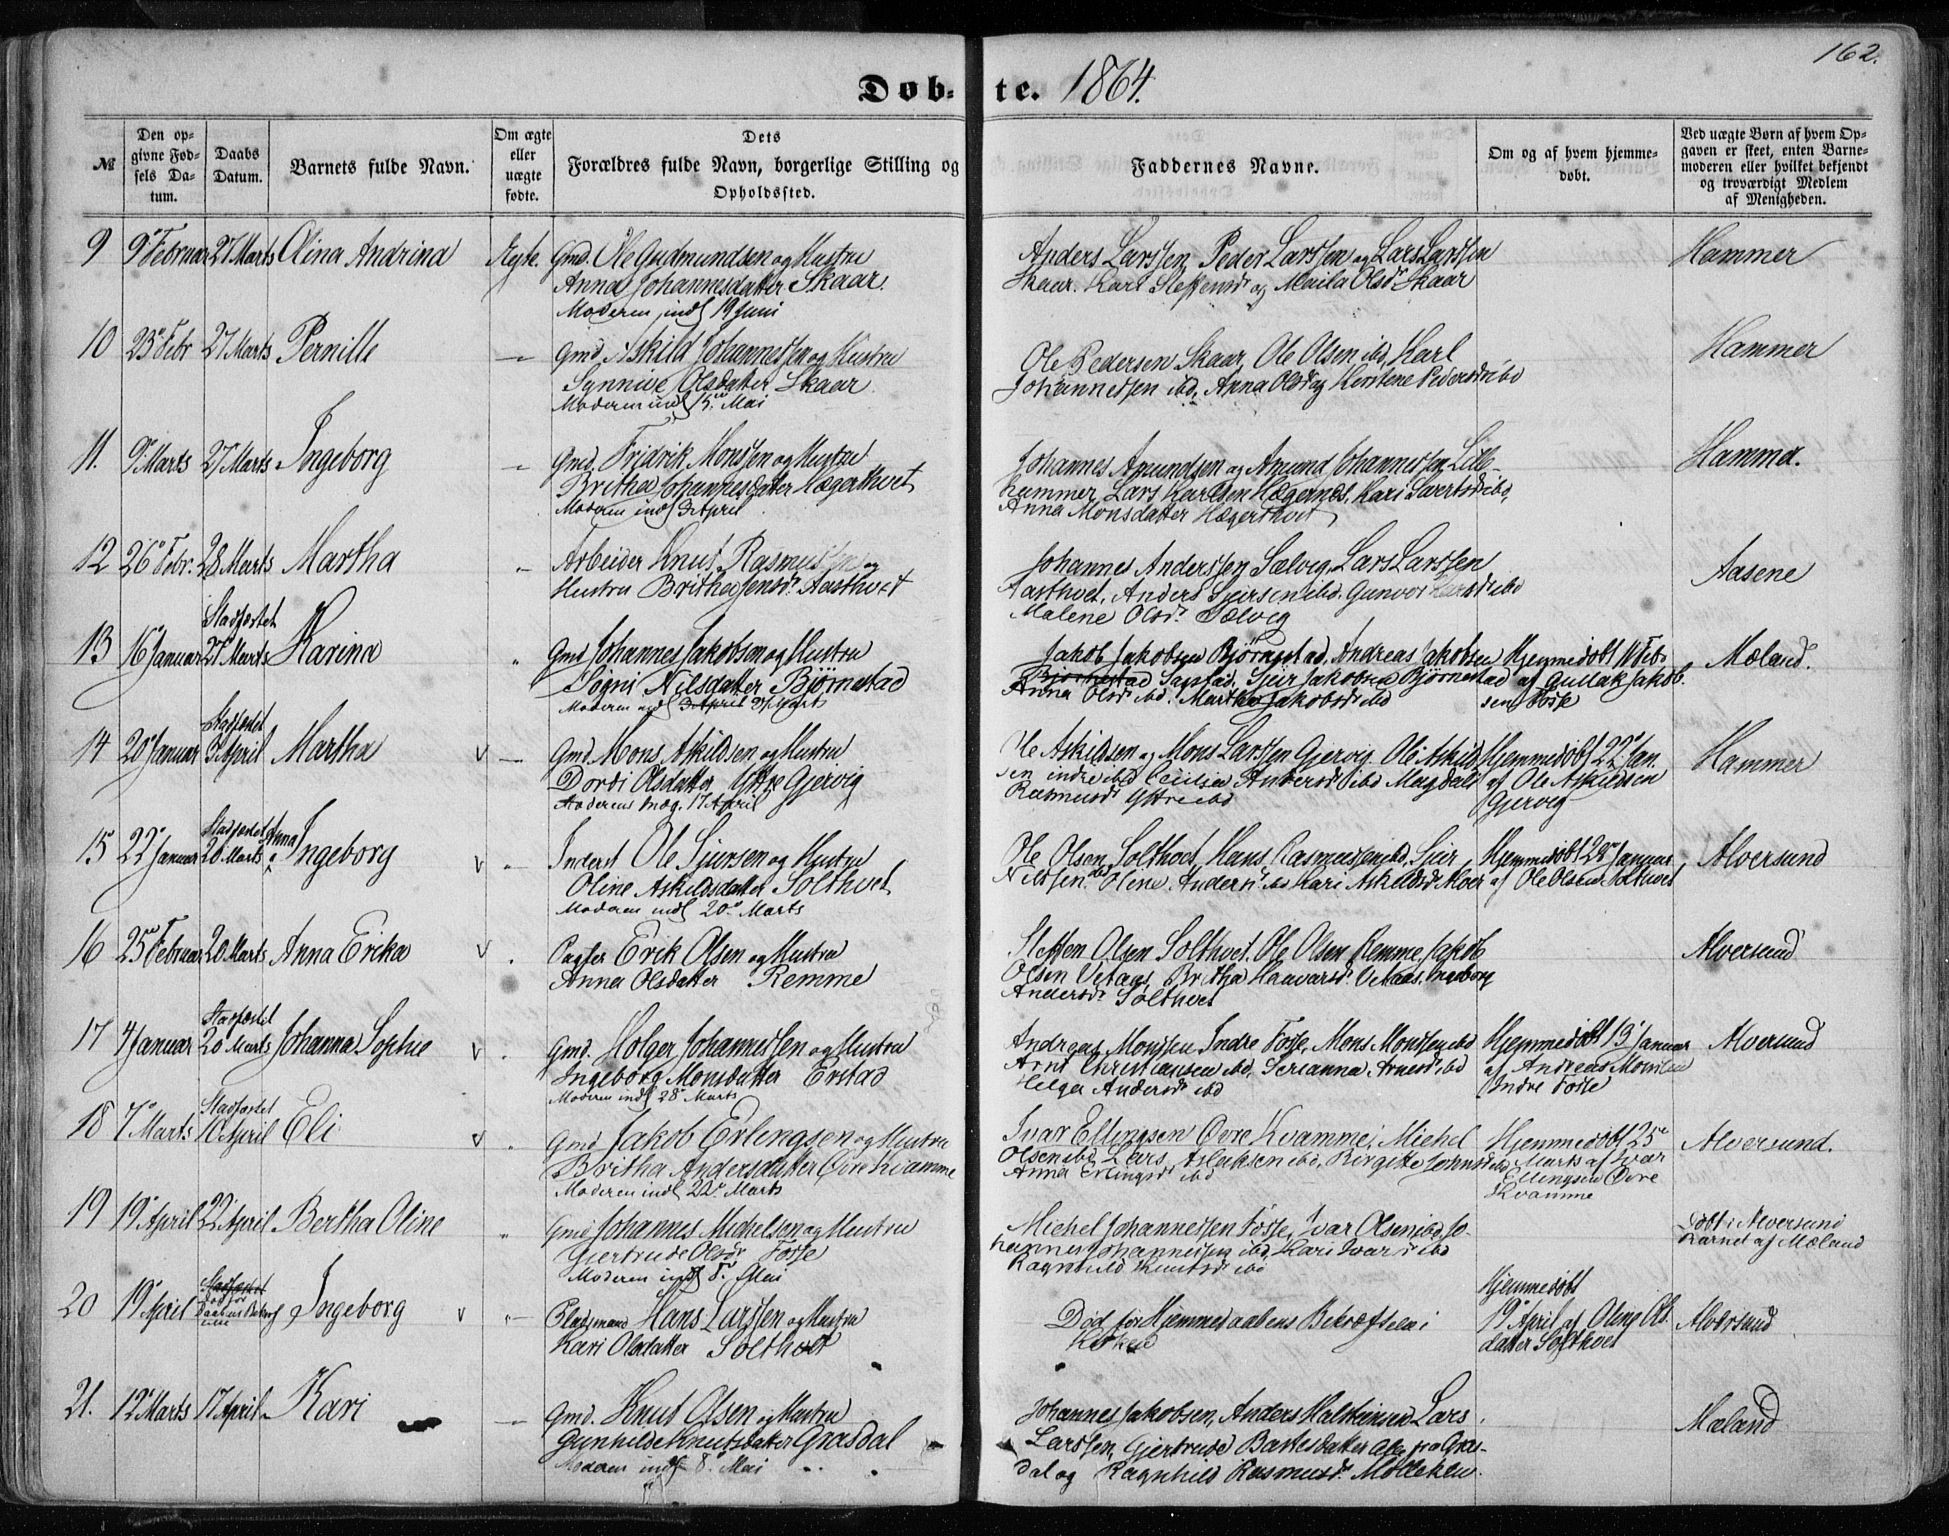 162.
Døb- te. 1864.
№
Den op-
givne Fød-
sels Da-
tum.
Daabs
Datum.
Barnets fulde Navn.
Om ægte
eller
uægte
fødte.
Dets
Forældres fulde Navn, borgerlige Stilling og
Opholdssted.
Faddernes Navne.
Om og af hvem hjemme-
døbt.
Ved uægte Børn af hvem Op-
gaven er skeet, enten Barne-
moderen eller hvilket bekjendt
og troværdigt Medlem
af Menigheden.
9 9 Februar 27 Marts Olina Andrina Ægte. Gmd. Ole Gudmundsen og Hustru
Anna Johannesdatter Skaar.
Moderen indl 19 Juni
Anders Larssen, Peder Larssen og Lars Larssen
Skaar. Kari Steffensdr og Maila Olsdr Skaar
Hammer
10 23 Febr 27 Marts Pernille — Gmd. Askild Johannessen og Hustru
Synnive Olsdatter Skaar.
Moderen indl 15. Mai
Ole Pedersen Skaar, Ole Olsen ibd, Karl
Johannessen ibd, Anna Olsd og Kerstene Pedersdr ibd
Hammer
11. 9 Marts 27 Marts Ingeborg — Gmd. Fridrik Monssen og Hustru
Britha Johannesdatter Hægerthvet
Moderen indl 3 April
Johannes Amundsen og Amund Johannessen Lille-
hammer Lars Karlsen Hægernes, Kari Sjvertsdr ibd,
Anna Monsdatter Hægerthvet
Hammer.
12 26 Febr. 28 Marts Martha — Arbeider Knut Rasmussen og
Hustru Britha Jensdr. Aasthvet
Johannes Anderssen Sælvig, Lars Larssen
Aasthvet, Anders Sjursen ibd. Gunvor Larsdr ibd
Malene Olsdr. Sælvig
Aasene
13 16 Januar Stadfæstet
27 Marts Karina " Gmd Johannes Jakobsen og Hustru
Sogni Nilsdatter Bjørnestad
Moderen indl 3 April 27 Marts
Jakob Jakobsen Bjørnestad, Andreas Jakobsen
Bjørnestad Sagstad, Sjur Jakobsen Bjørnestad
Anna Olsdr ibd. Martha Jakobsdr ibd
Hjemmedøbt 11 Feb.
af Gullak Jakob-
sen Fosse
Mæland.
14 20 Januar Stadfæstet
3 April Martha v — Gmd. Mons Askildsen og Hustru
Dordi Olsdatter Yttre Gjervig
Moderens Indg. 17 April
Ole Askildsen og Mons Larssen Gjervig. Ole Askild-
sen indre ibd Cecilia Andersdr ibd Magdali
Rasmusdr Yttre ibd
Hjemmedøbt 22 Jan.
af Ole Askildsen
Gjervig
Hammer
15 22 Januar Stadfæstet
20 Marts Anna
Ingeborg v " Inderst Ole Sjursen og Hustru
Oline Askildsdatter Solthvet
Moderen indl 20 Marts
Ole Olsen Solthvet, Hans Rasmussen ibd, Sjur
Nilssen ibd Oline Andersd ibd Kari Askildsdr Alver
Hjemmedøbt 28 Januar
af Ole Olsen Solthvet
Alversund
16 25 Februar 20 Marts Anna Erika v . Pagter Erik Olsen og Hustru
Anna Olsdatter Remme
Steffen Olsen Solthvet. Ole Olsen Remme, Jakob
Olsen Vetaas, Britha Haavarsdr. Vetaas, Ingeborg
Andersdr Solthvet
Alversund
17 4 Januar Stadfæstet
20 Marts Johanna Sophie v . Gmd. Holger Johannessen og Hustru
Ingeborg Monsdatter Erstad
Moderen indl 28 Marts
Andreas Monssen Indre Fosse, Mons Monssen ibd
Arne Christiansen ibd, Serianna Arnesdr ibd
Helga Andersdr ibd
Hjemmedøbt 13 Januar
af Andreas Monssen
Indre Fosse
Alversund
18 7 Marts Stadfæstet
10 April Eli v " Gmd Jakob Erlingsen og Hustru
Britha Andersdatter Øvre Kvamme
Moderen indl 22 Marts
Ivar Ellingsen Øvre Kvamme, Michel
Olsen ibd Lars Aslaksen ibd, Birgitte Johnsd ibd
Anna Erlingsdr ibd
Hjemmedøbt 25
Marts af Ivar
Ellingsen Øvre
Kvamme
Alversund.
19 19 April 22 April Bertha Oline " Gmd Johannes Michelsen og Hustru
Gjertrude Olsdr Fosse
Moderen indl 8. Mai
Michel Johannessen Fosse, Ivar Olsen ibd, Jo-
hannes Johannessen ibd, Kari Ivarsdr ibd
Ragnhild Knutsdr ibd
Døbt i Alversund
Barnet af Mæland
20 19 April Stadfæstet
Ingeborg v " Pladsmand Hans Larssen og Hustru
Kari Olsdatter Solthvet
Død før Hjemmedaabens Bekræftelse i
Kirken
Hjemmedøbt
19 April af Oleng Ols-
datter Solthvet
Alversund
21. 12 Marts 17 April Kari — Gmd. Knut Olsen og Hustru
Gunhilde Knutsdatter Grasdal
Moderen indl 8. Mai
Johannes Jakobsen, Anders Halsteinsen Lars
Larssen, Gjertrude Bartesdatter alle fra Gras-
dal og Ragnhild Rasmusdr Mølleken
Mæland